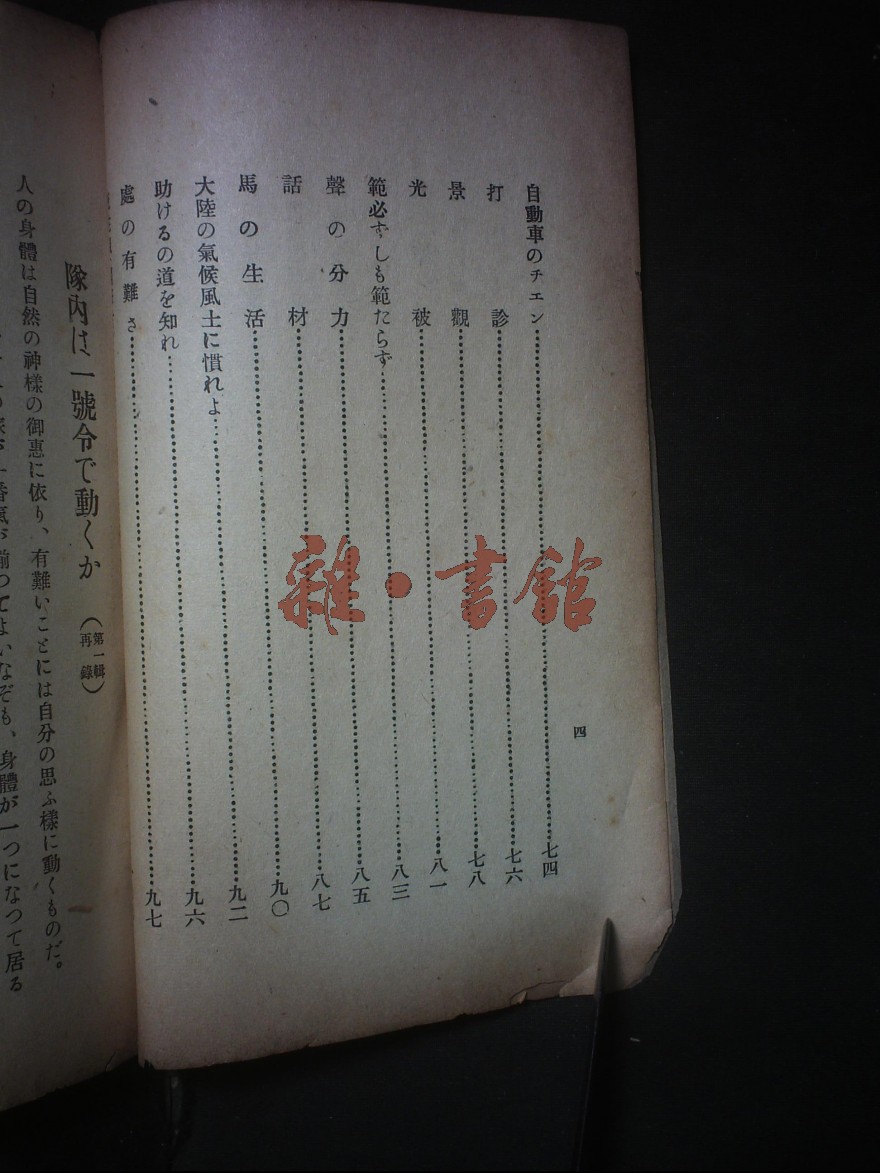 四
自動車のチエン……七四
打診……七六
景觀……七八
光被……八一
範必ずしも範たらず……八三
聲の分力……八五
話材……八七
馬の生活……九〇
大陸の氣候風土に慣れよ……九二
助けるの道を知れ……九六
處の有難さ……九七
隊內は一號令で動くか（第一輯再錄）
人の身體は自然の神樣の御惠に依り、有難いことには自分の思ふ樣に動くものだ。
揃つてよいなぞも、身體が一つになつて居る
雜·書館